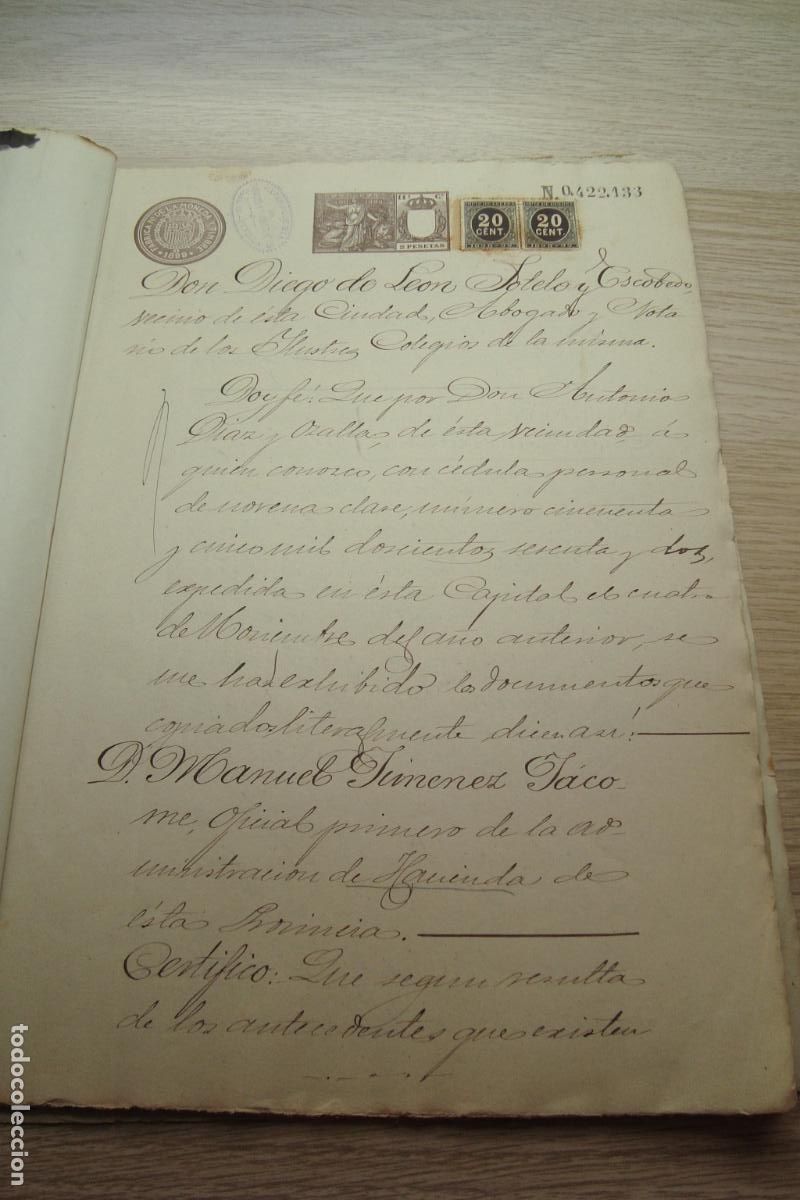 N. 0.422.133
FABRICA NL. DE LA MONEDA Y TIMBRE
1899
2 PESETAS
20
CENT
1898-99
20
CENT
1898-99
Don Diego de Leon Sotelo y Escobedo,
vecino de ésta Ciudad, Abogado y Nota
rio de los Ilustres Colegios de la misma.
Doy fé: Que por Don Antonio
Diaz y de ésta vecindad, á
quien conozco, con cédula personal
de novena clase, número cincuenta
y cinco mil doscientos sesenta y dos,
expedida en ésta Capital el cuatro
de Noviembre del año anterior, se
me ha exhibido los documentos que
copiados literalmente dicen así:
D. Manuel Jimenez Jáco-
me, Oficial primero de la ad-
ministracion de Hacienda de
ésta Provincia.
Certifico: Que segun resulta
de los antecedentes que existen
todocoleccion